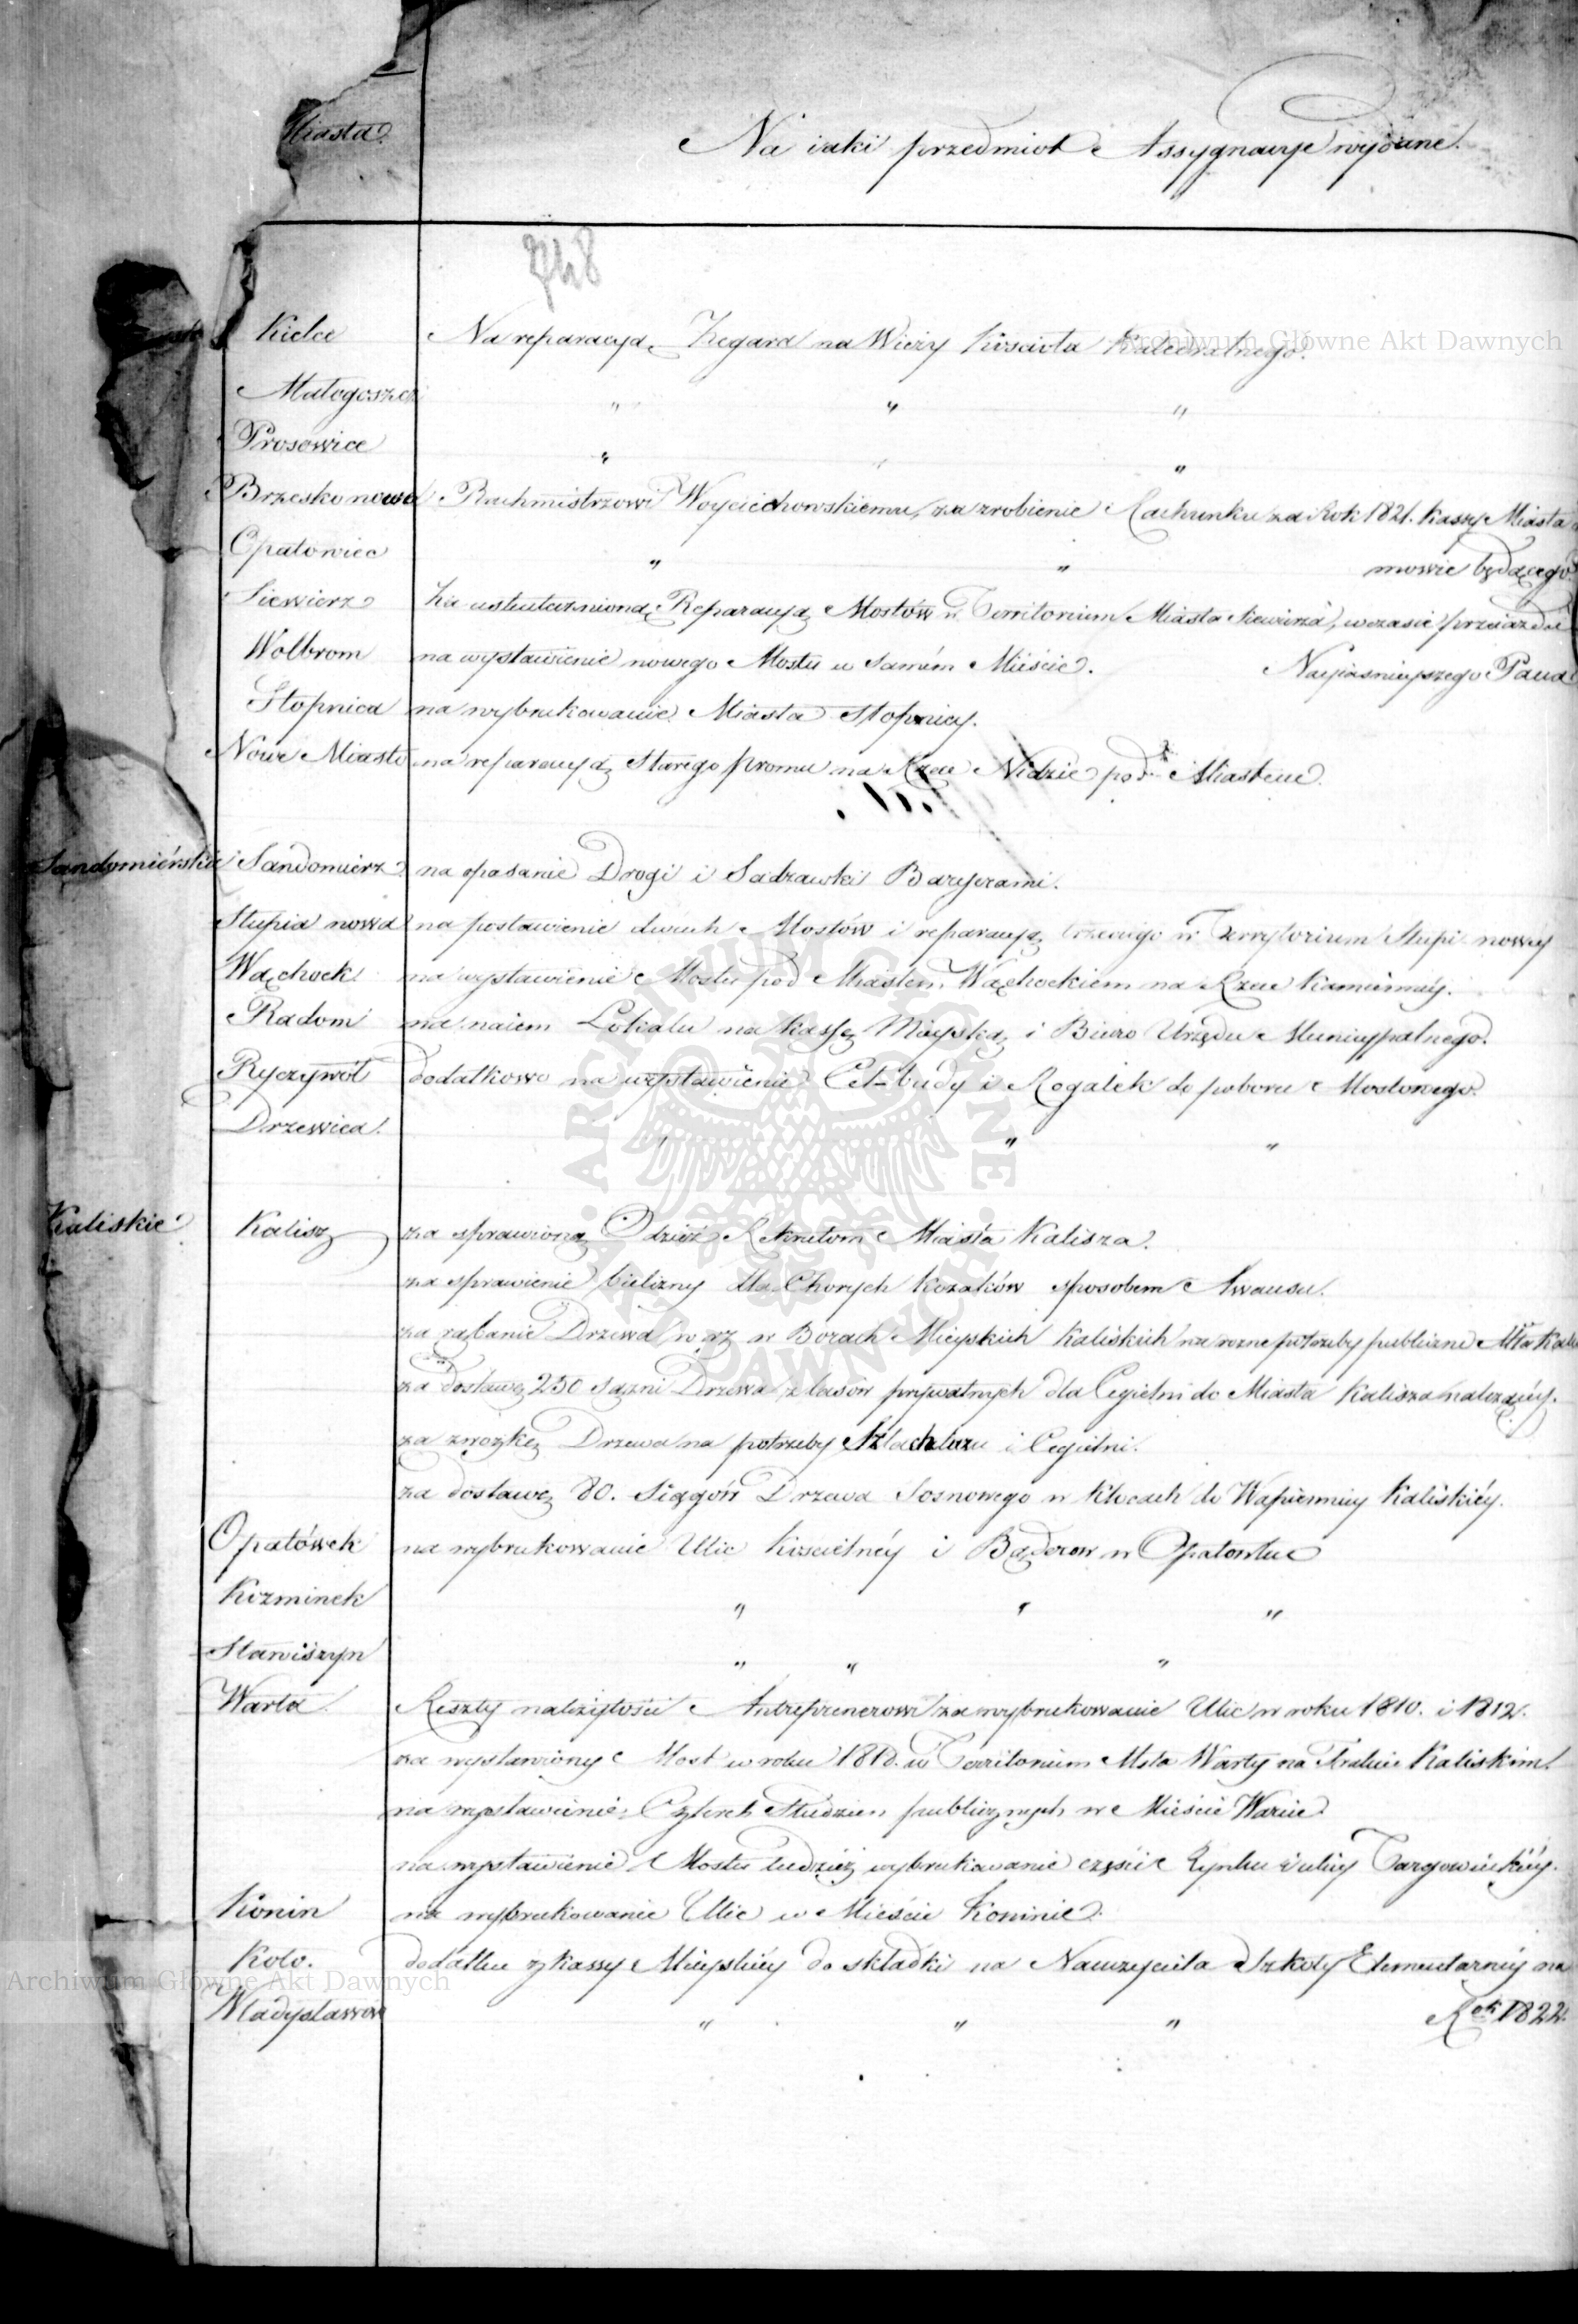 Miasta
Na iaki przedmiot Assygnacye wydane.
748
Kielce Na reparacyą Zegara na Wieży Kościoła Katedralnego.
Archiwum Główne Akt Dawnych
Małogoszcz " " "
Prosowice " " "
Brzesko nowe Rachmistrzowi Woyciechowskiemu za zrobienie Rachunku za Rok 1821. Kassy Miasta w
Opatowiec " " mowie będącego
Siewierz Za uskutecznioną Reparacyą Mostów w Territorium Miasta Siewierza, wczasie przeiazdu
Wolbrom na wystawienie nowego Mostu w samém Mieście. Nayiasnieyszego Pana
Stopnica na wybrukowanie Miasta Stopnicy.
Nowe Miasto na reparacyą Starego promu na Rzece Nidzie pod Miastem.
Sandomiérskie Sandomierz na opasanie Drogi i Sadzawki Baryerami.
Słupia nowa na postawienie dwuch Mostów i reparacyą trzeciego w Terrytorium Słupi nowey
Wąchock na wystawienie Mostu pod Miastem Wąchockiem na Rzece Kamienney.
Radom na naiem Lokalu na Kassę Mieyską i Biuro Urzędu Municypalnego.
Ryczywół dodatkowo na wystawienie Cel-budy i Rogatek do poboru Mostowego.
Drzewica. " " "
Kaliskie Kalisz za sprawioną Odzież Rekrutom Miasta Kalisza.
za sprawienie bielizny dla Chorych Kozaków sposobem Awansu.
za rąbanie Drzewa w Borach Mieyskich Kaliskich na rozne potrzeby publiczne Mta Kali
za dostawę 250 sążni Drzewa z lasów prywatnych dla Cegielni do Miasta Kalisza należącéy.
za zwozkę Drzewa na potrzeby Szlachtuzu i Cegielni.
za dostawę 80. Siągów Drzewa Sosnowego w Klocach do Wapiennicy Kaliskiéy.
Opatówek na wybrukowanie Ulic Kościelnéy i w Opatówku
Kozminek " " "
Stawiszyn " " "
Warta Reszty należytości Antreprenerowi za wybrukowanie Ulic w roku 1810. i 1812.
za wystawiony Most w roku 1818. w Territorium Msta Warty na Trakcie Kaliskim.
na wystawienie Czterech Studzien publicznych w Mieście Warcie.
na wystawienie Mostu tudzież wybrukowanie części Rynku i ulicy Targowickiéy.
Konin na wybrukowanie Ulic w Mieście Koninie.
Koło. dodatku z Kassy Mieyskiéy do składki na Nauczyciela Szkoły Elementarnéy na
Archiwum Główne Akt Dawnych
Władysławów " " " Rok 1822.
ARCHIWUM GŁÓWNE AKT DAWNYCH